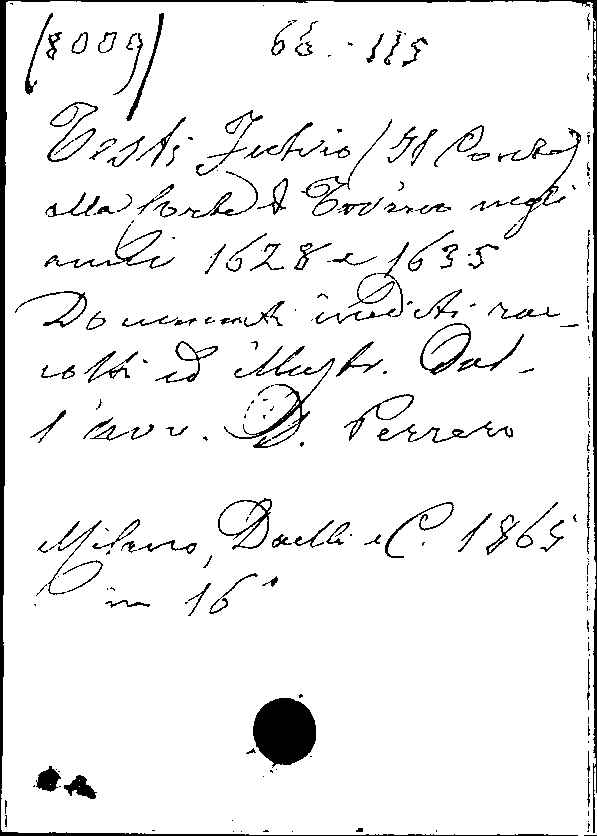 (8009) 66.-115
Testi Fulvio (Il Conte)
alla Corte di Torino negli
anni 1628 e 1635
Documenti inediti rac-
colti ed illustr. Dal-
l'avv. D. Perrero
Milano, Daelli e C. 1865
in 16°